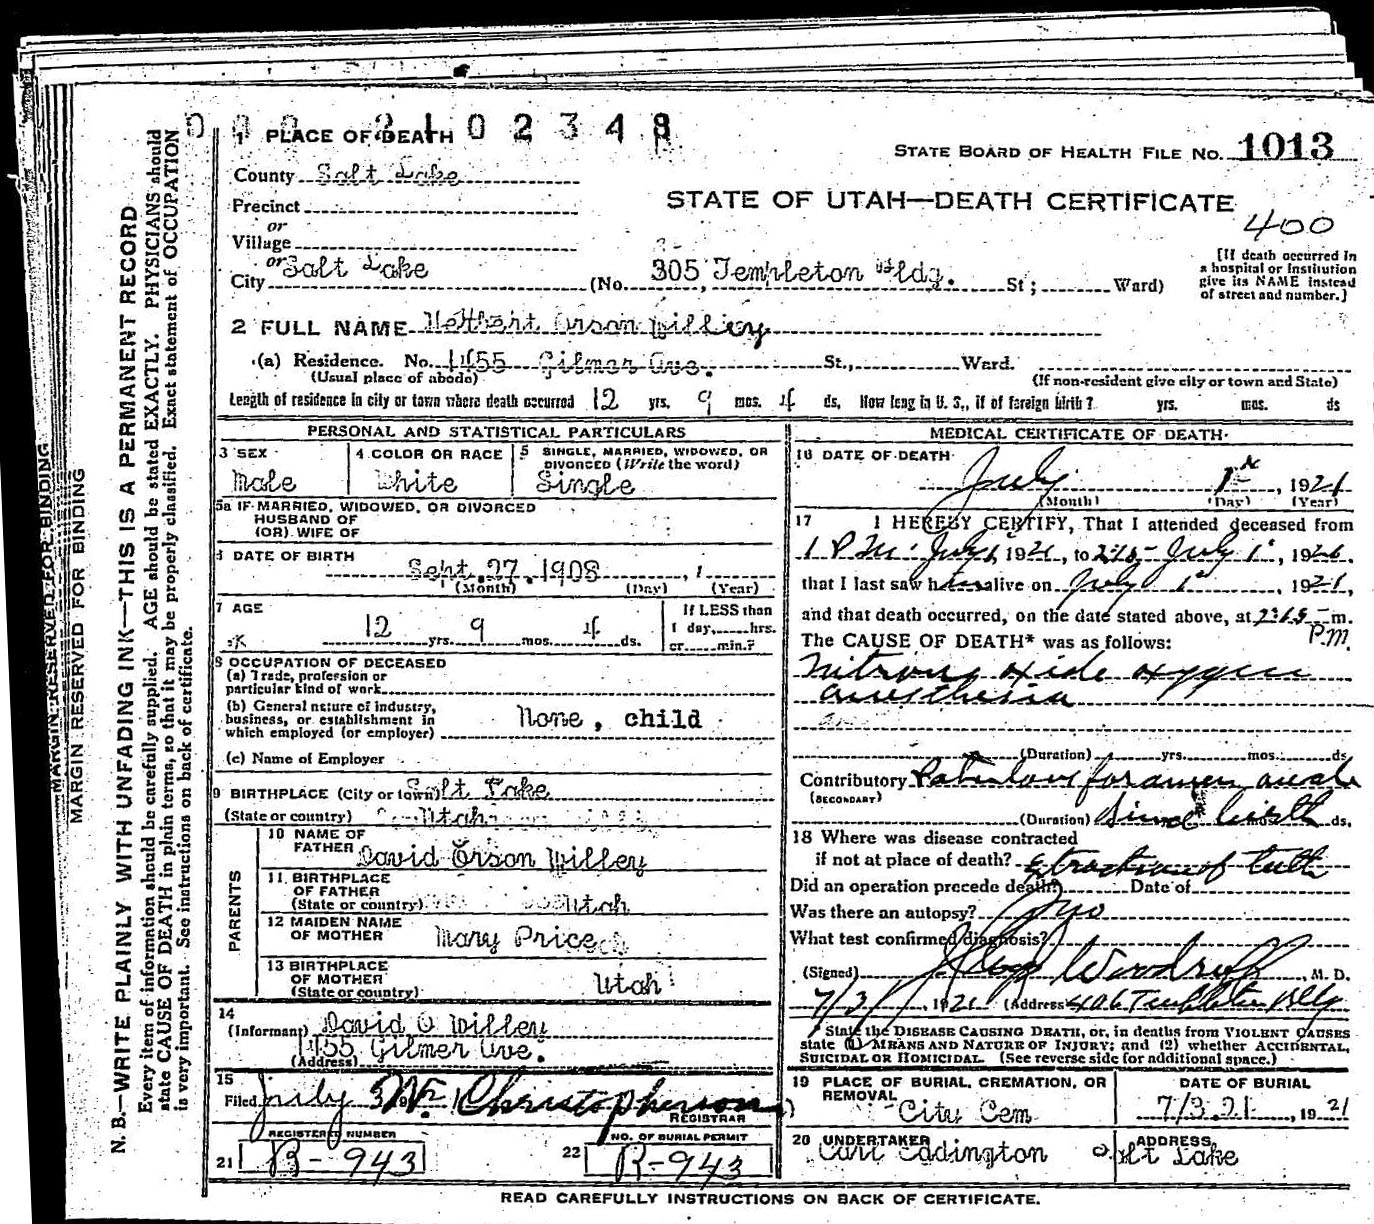 1 PLACE OF DEATH
2102348
STATE BOARD OF HEALTH FILE NO. 1013
County Salt Lake
STATE OF UTAH—DEATH CERTIFICATE
400
Precinct
or
Village
or
City Salt Lake (No. 305 Templeton Bldg. St; Ward)
[If death occurred in a hospital or institution give its NAME instead of street and number.]
2 FULL NAME Orson Willey
(a) Residence. No. 1455 Gilmer Ave. St., Ward.
(Usual place of abode) (If non-resident give city or town and State)
Length of residence in city or town where death occurred 12 yrs. 9 mos. 4 ds. How long in U. S., if of foreign birth? yrs. mos. ds
PERSONAL AND STATISTICAL PARTICULARS
3 SEX Male
4 COLOR OR RACE White
5 SINGLE, MARRIED, WIDOWED, OR DIVORCED (Write the word) Single
5a IF MARRIED, WIDOWED, OR DIVORCED
HUSBAND OF
(OR) WIFE OF
DATE OF BIRTH Sept. 27. 1908
(Month) (Day) (Year)
7 AGE 12 yrs. 9 mos. 4 ds.
If LESS than
1 day, hrs.
or min.?
8 OCCUPATION OF DECEASED
(a) Trade, profession or
particular kind of work
(b) General nature of industry,
business, or establishment in
which employed (or employer) None, child
(c) Name of Employer
9 BIRTHPLACE (City or town) Salt Lake
(State or country) Utah
PARENTS
10 NAME OF FATHER David Orson Willey
11 BIRTHPLACE OF FATHER (State or country) Utah
12 MAIDEN NAME OF MOTHER Mary Price
13 BIRTHPLACE OF MOTHER (State or country) Utah
14
(Informant) David O Willey
(Address) 1455 Gilmer Ave.
15
Filed July 3 Christopherson
REGISTRAR
REGISTERED NUMBER
21 B-943
NO. OF BURIAL PERMIT
22 B-943
MEDICAL CERTIFICATE OF DEATH
16 DATE OF DEATH
July 1st, 1921
(Month) (Day) (Year)
17 I HEREBY CERTIFY, That I attended deceased from
1 P.M. July 1, 1921, to 2:15 July 1st, 1921.
that I last saw him alive on July 1st, 1921,
and that death occurred, on the date stated above, at 2:15 m.
P.M.
The CAUSE OF DEATH* was as follows:
Nitrous oxide oxygen
anesthesia
(Duration) yrs. mos. ds
Contributory foramen ovale
(SECONDARY)
(Duration) since birth mos. ds.
18 Where was disease contracted
if not at place of death? extraction of teeth
Did an operation precede death? Date of
Was there an autopsy? no
What test confirmed diagnosis?
(Signed) Woodruff, M. D.
7/3/, 1921 (Address 406 Templeton Bldg
*State the DISEASE CAUSING DEATH, or, in deaths from VIOLENT CAUSES
state (1) MEANS AND NATURE OF INJURY; and (2) whether ACCIDENTAL,
SUICIDAL OR HOMICIDAL. (See reverse side for additional space.)
19 PLACE OF BURIAL, CREMATION, OR REMOVAL City Cem
DATE OF BURIAL 7/3.21., 1921
20 UNDERTAKER Carl Eddington
ADDRESS Salt Lake
READ CAREFULLY INSTRUCTIONS ON BACK OF CERTIFICATE.
MARGIN RESERVED FOR BINDING
MARGIN RESERVED FOR BINDING
N. B.—WRITE PLAINLY WITH UNFADING INK—THIS IS A PERMANENT RECORD
Every item of information should be carefully supplied. AGE should be stated EXACTLY. PHYSICIANS should
state CAUSE OF DEATH in plain terms, so that it may be properly classified. Exact statement of OCCUPATION
is very important. See instructions on back of certificate.